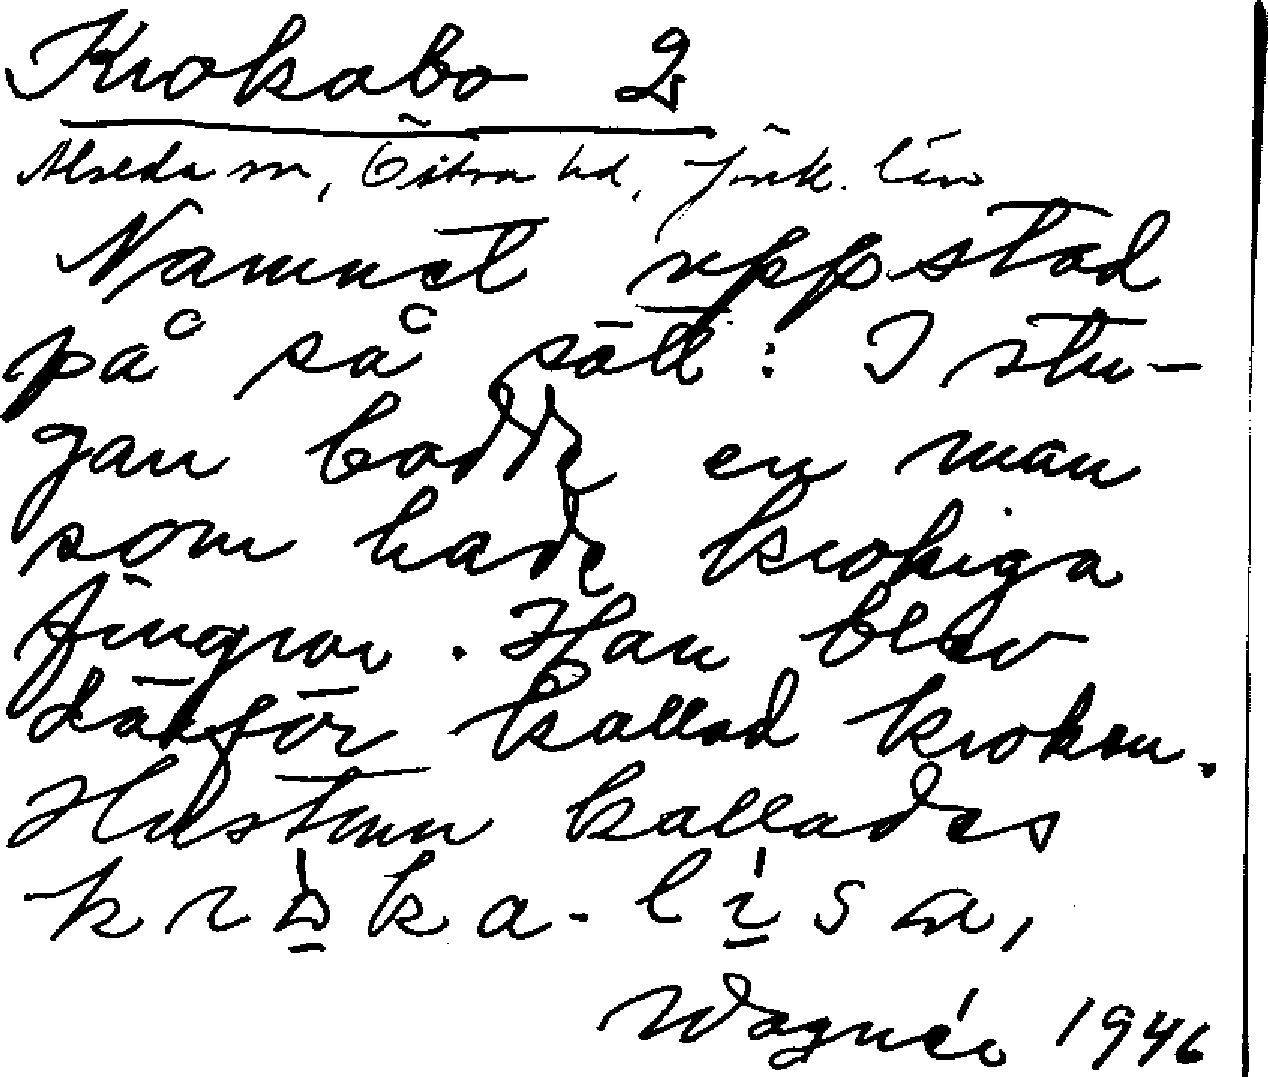 Krokabo 2
Alseda sn, Östra hd, Jönk. län
Namnet uppstod
på så sätt: I stu-
gan bodde en man
som hade krokiga
fingrar. Han blev
därför kallad kroken.
Hustrun kallades
kròka-lísa,
Wagnér 1946